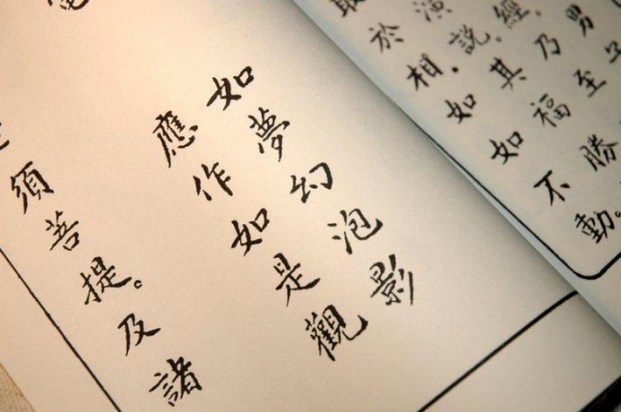 男子
經。乃至
演說。其福勝
於相。如如不動。
如夢幻泡影
應作如是觀
須菩提。及諸